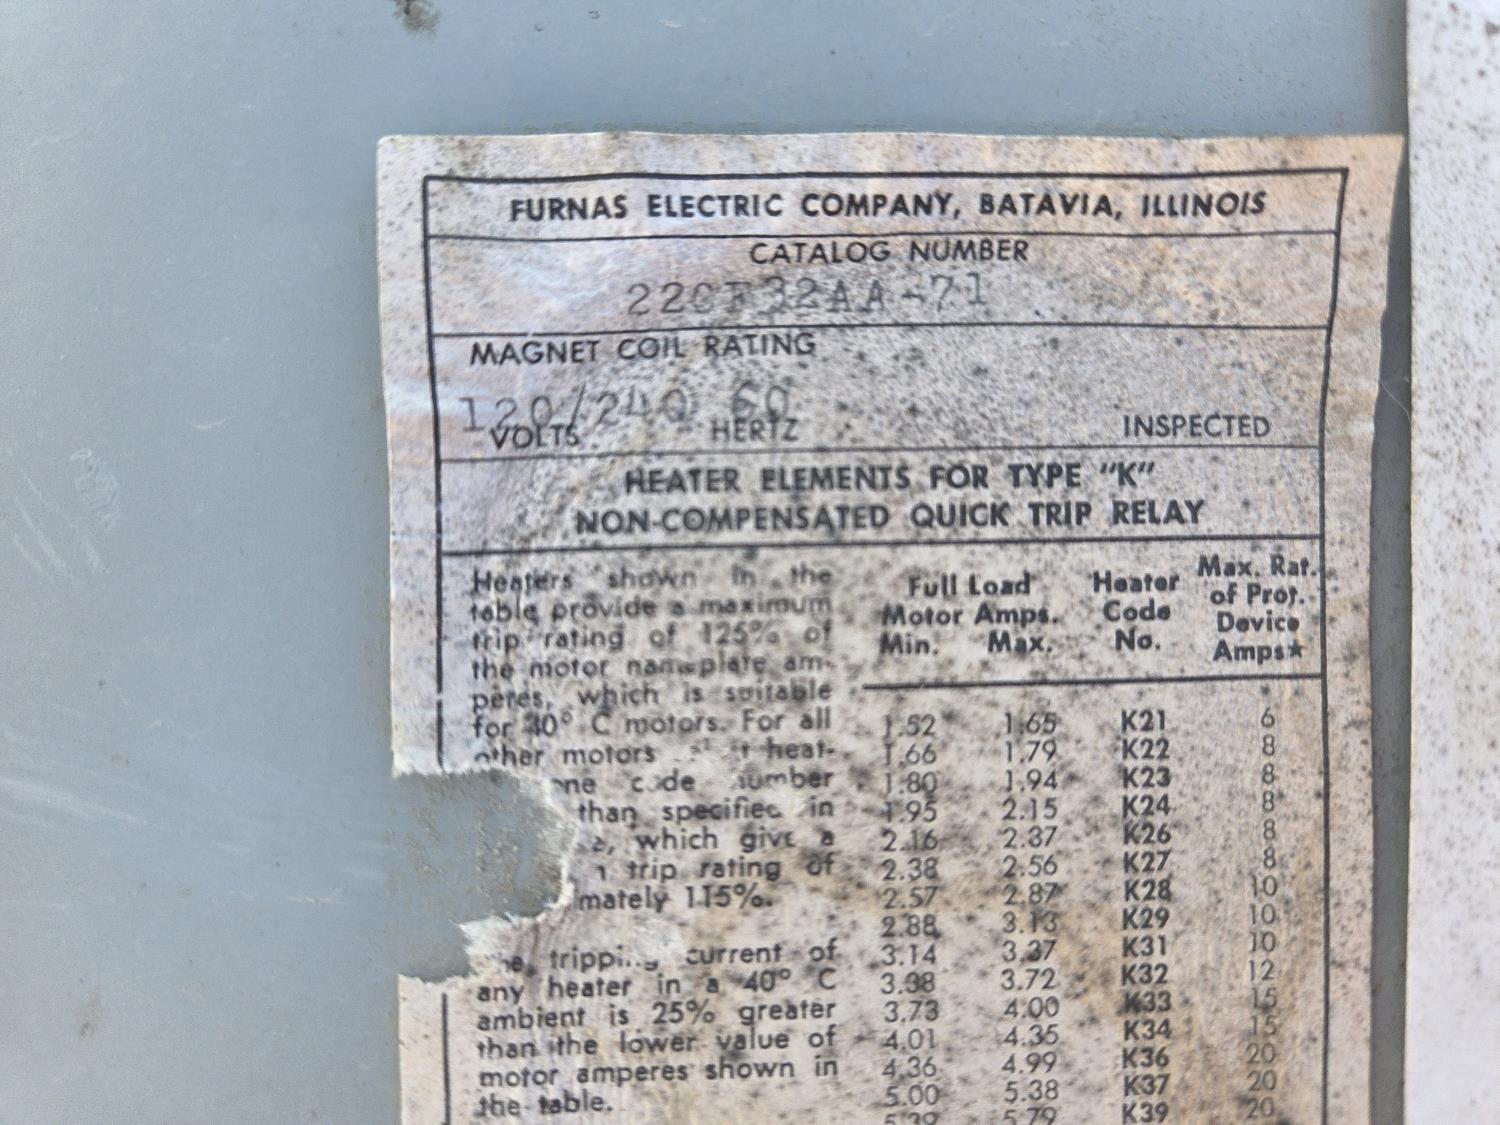 FURNAS ELECTRIC COMPANY, BATAVIA, ILLINOIS
CATALOG NUMBER
22CF32AA-71
MAGNET COIL RATING
120/240 60
VOLTS HERTZ INSPECTED
HEATER ELEMENTS FOR TYPE "K"
NON-COMPENSATED QUICK TRIP RELAY
Heaters shown in the
table provide a maximum
trip rating of 125% of
the motor nameplate am-
peres, which is suitable
for 40° C motors. For all
other motors heat-
one code number
than specified in
, which give a
trip rating of
mately 115%.
tripping current of
any heater in a 40° C
ambient is 25% greater
than the lower value of
motor amperes shown in
the table.
Full Load
Motor Amps.
Min. Max.
Heater
Code
No.
Max. Rat.
of Prot.
Device
Amps★
1.52 1.65 K21 6
1.66 1.79 K22 8
1.80 1.94 K23 8
1.95 2.15 K24 8
2.16 2.37 K26 8
2.38 2.56 K27 8
2.57 2.87 K28 10
2.88 3.13 K29 10
3.14 3.37 K31 10
3.38 3.72 K32 12
3.73 4.00 K33 15
4.01 4.35 K34 15
4.36 4.99 K36 20
5.00 5.38 K37 20
5.39 5.79 K39 20